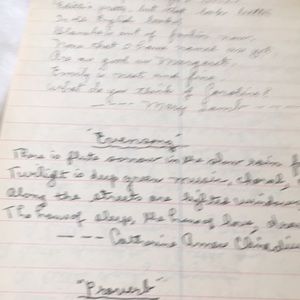 Edith's pretty, but that looks better
In old English books;
Blanche's out of fashion now,
None that I have named as yet,
Are so good as Margaret,
Emily is neat and fine,
What do you think of Caroline?
---- Mary Lamb ----
"Evensong"
There is flute sorrow in the slow rain
Twilight is deep green music,
Along the streets are lighted windows
The hour of sleep, the hour of love,
--- Catherine
"Proverb"